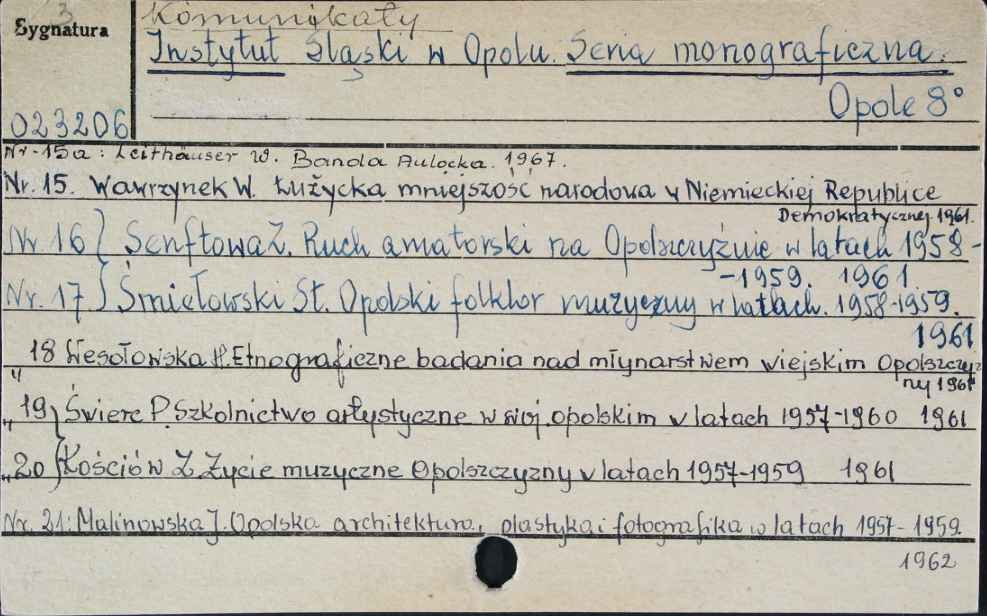 3
Sygnatura
Komunikaty
Instytut Śląski w Opolu. Seria monograficzna.
Opole 8°
023206
Nr-15a: Leithäuser W. Banda Aulocka. 1967.
Nr. 15. Wawrzynek W. Łużycka mniejszość narodowa w Niemieckiej Republice
Demokratycznej 1961.
Nr 16} Senftowa Z. Ruch amatorski na Opolszczyźnie w latach 1958-
-1959. 1961.
Nr. 17} Śmiełowski St. Opolski folklor muzyczny w latach. 1958-1959.
1961
" 18 Wesołowska H. Etnograficzne badania nad młynarstwem wiejskim Opolszczyz-
ny 1961
" 19} Świerc P. Szkolnictwo artystyczne w woj. opolskim w latach 1957-1960 1961
" 20} Kościów Z. Życie muzyczne Opolszczyzny w latach 1957-1959 1961
Nr. 21: Malinowska J. Opolska architektura, plastyka i fotografika w latach 1957-1959.
1962